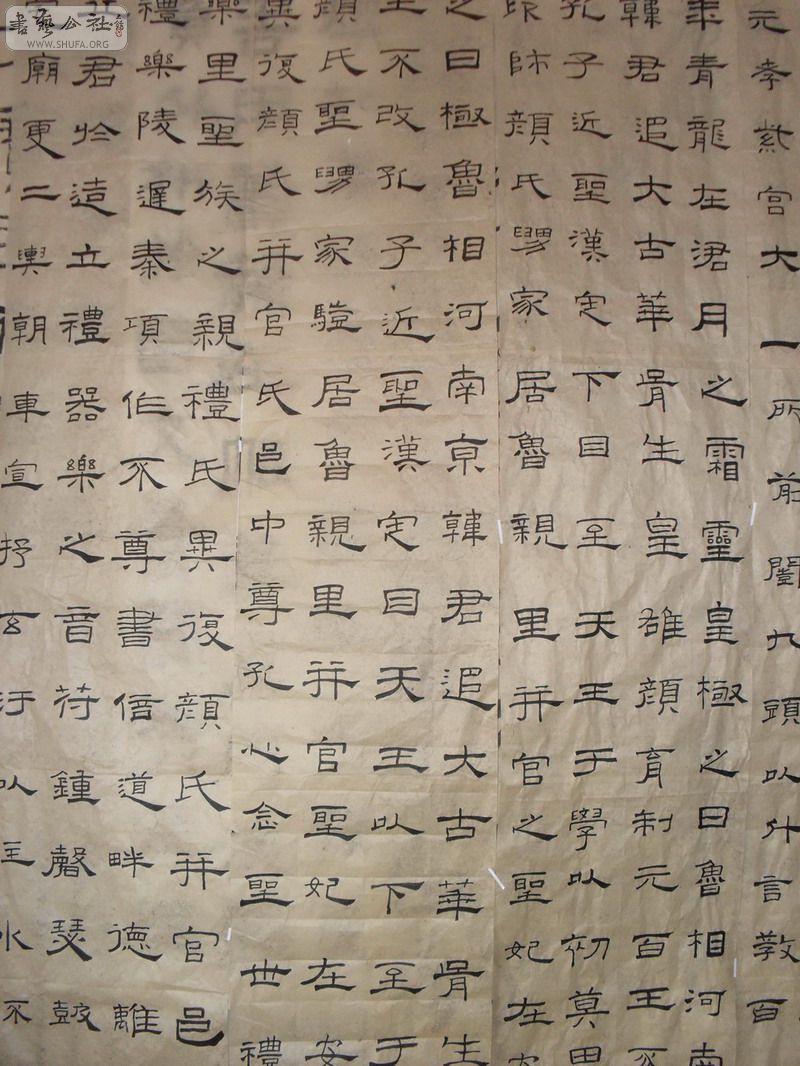 書藝公社
WWW.SHUFA.ORG
元孝紫宮大一所前闓九頭以什言教百
年青龍在涒月之霜靈皇極之日魯相河南
韓君追大古華胥生皇雄顏育制元百王不
孔子近聖漢定下目至天王于學以初莫
師顏氏舅家居魯親里并官之聖妃在安
之日極魯相河南京韓君追大古華胥生
王不改孔子近聖漢定目天王以下至于
顏氏聖舅家驗居魯親里并官聖妃在安
異復顏氏并官氏邑中尊孔心念聖世禮
樂里聖族之親禮氏異復顏氏并官邑
禮樂陵遲秦項作不尊書信道畔德離
君於造立禮器樂之音苻鍾磬瑟鼓
廟更二輿朝車宣抒玄汙以注水不